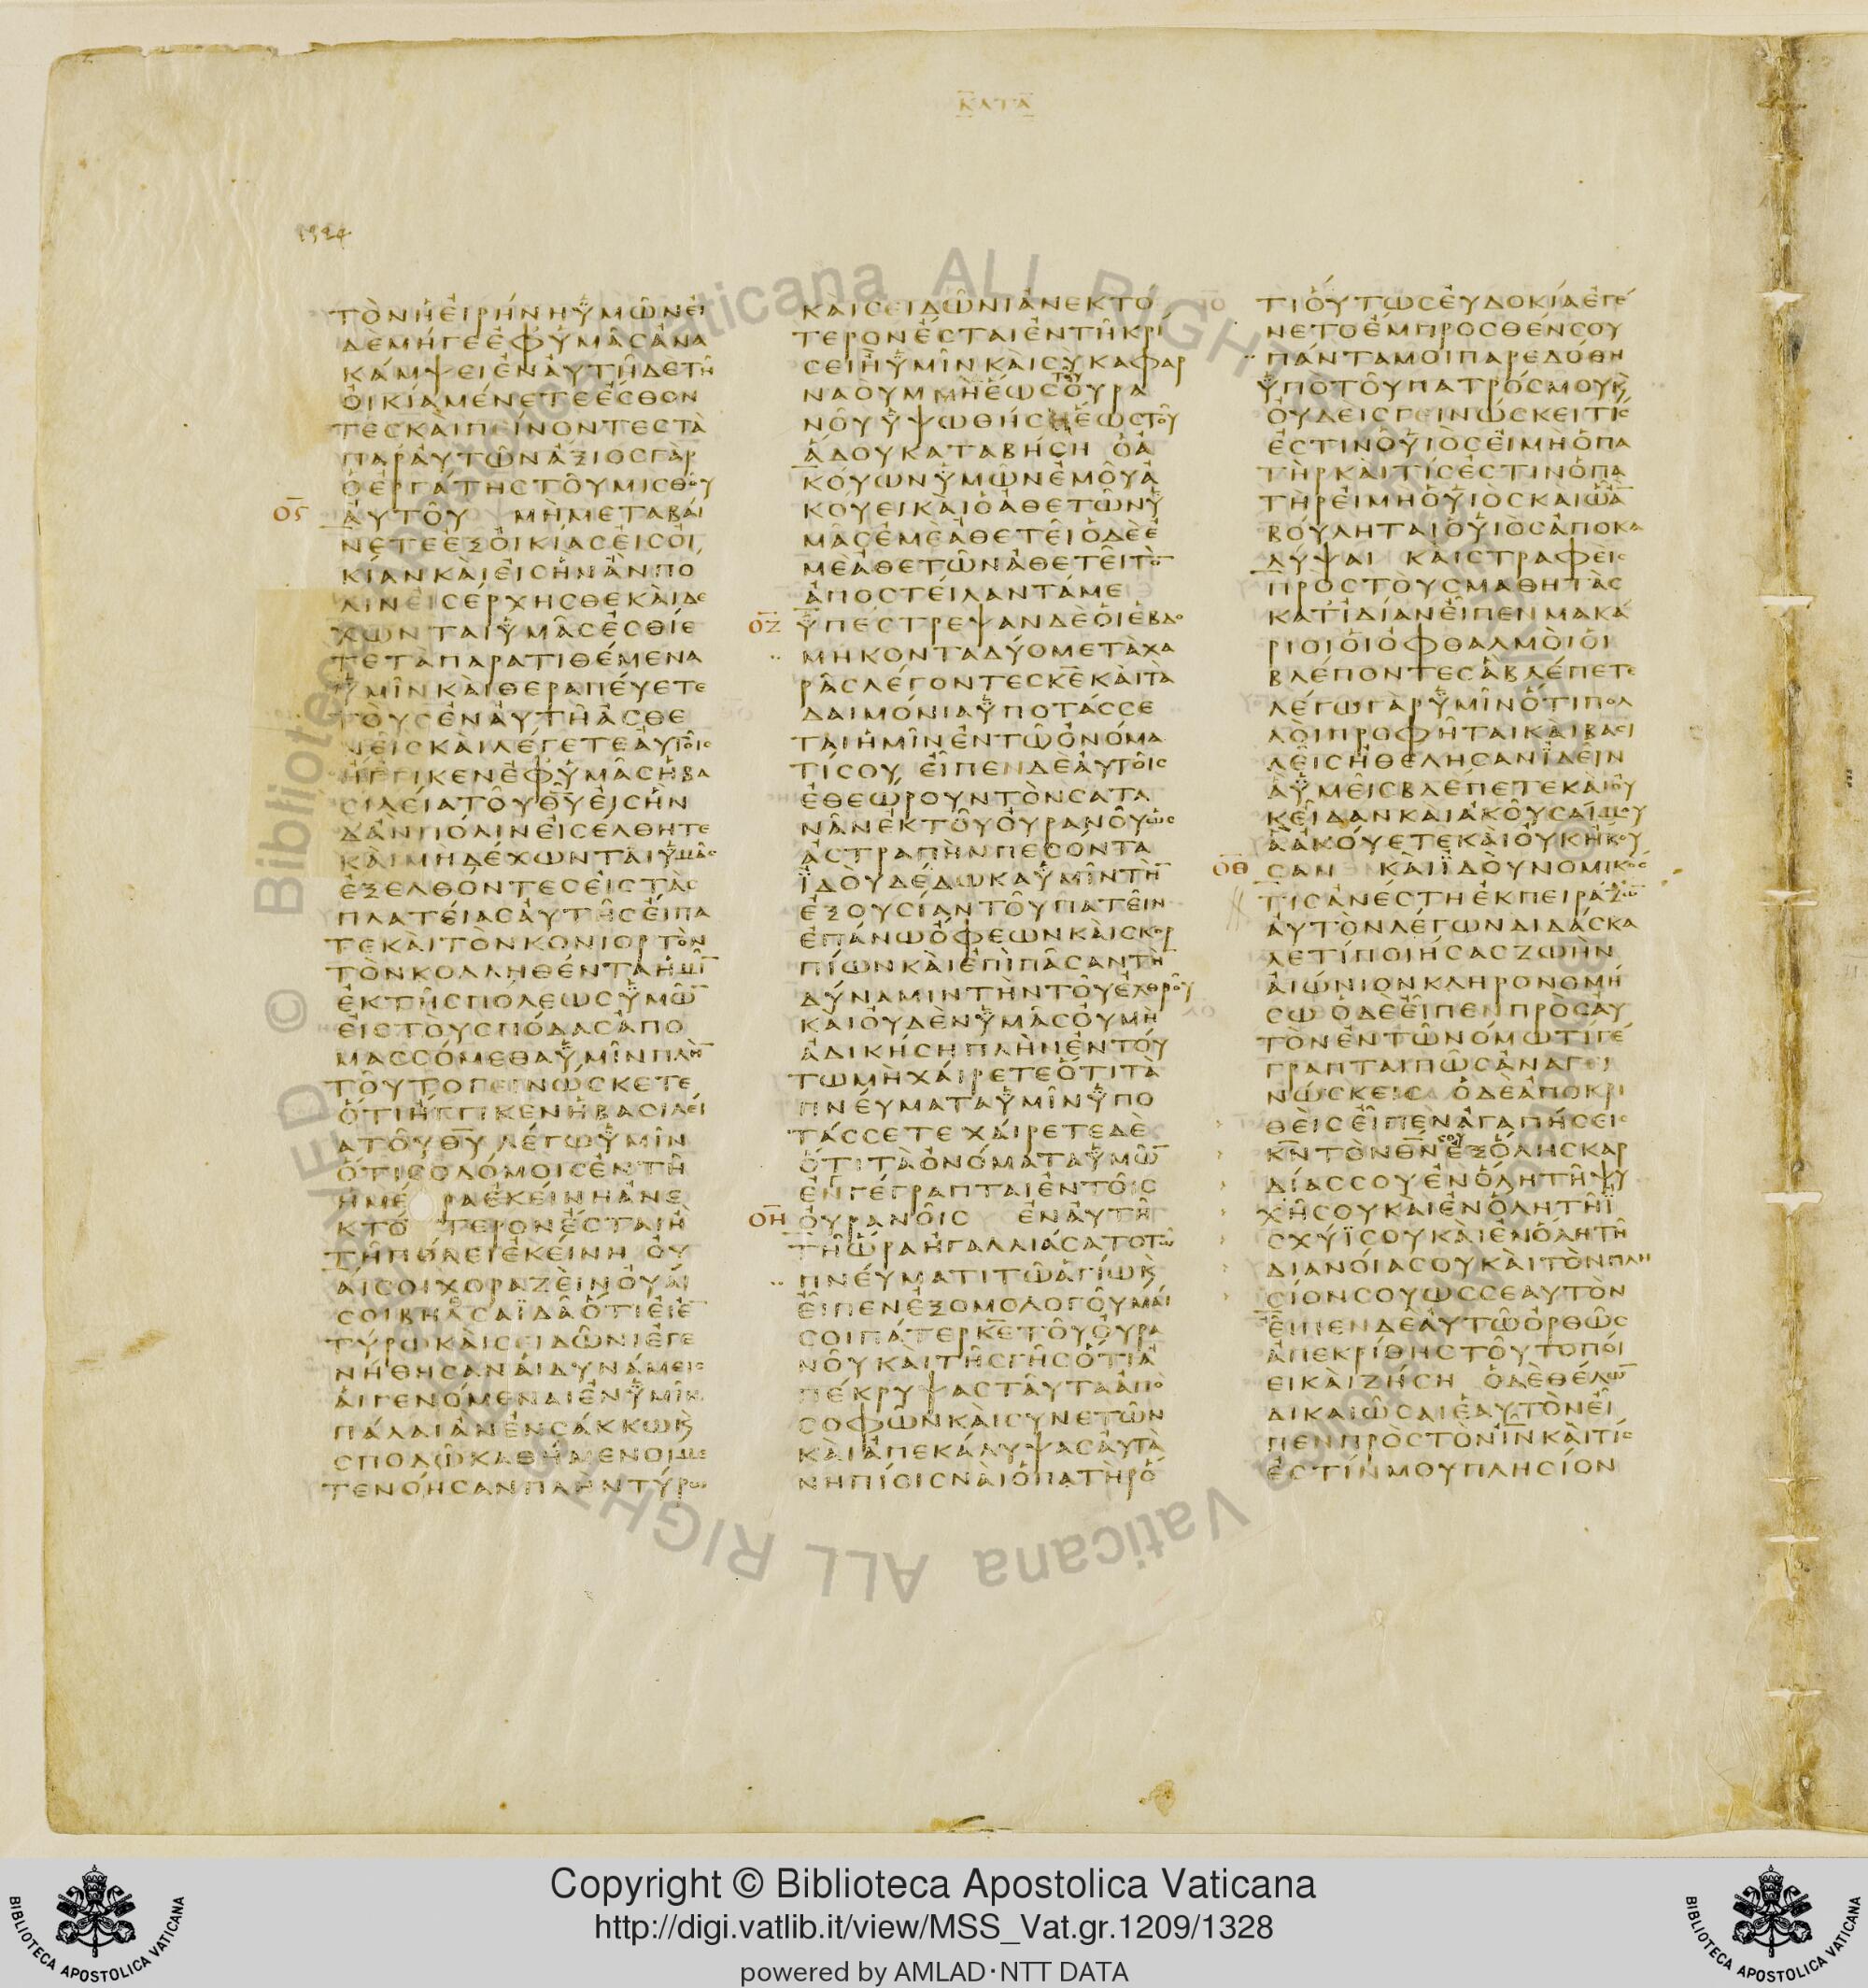 ΚΑΤΑ
1324
ΤΟΝΗΕΙΡΗΝΗΫΜΩΝΕΙ
ΔΕΜΗΓΕΕΦΥΜΑΣΑΝΑ
ΚΑΜΨΕΙΕΝΑΥΤΗΔΕΤΗ
ΟΙΚΙΑΜΕΝΕΤΕΕΣΘΟΝ
ΤΕΣΚΑΙΠΕΙΝΟΝΤΕΣΤΑ
ΠΑΡΑΥΤΩΝΑΞΙΟΣΓΑΡ
ΟΕΡΓΑΤΗΣΤΟΥΜΙΣΘΟΥ
Ος ΑΥΤΟΥ ΜΗΜΕΤΑΒΑΙ
ΝΕΤΕΕΞΟΙΚΙΑΣΕΙΣΟΙ
ΚΙΑΝΚΑΙΕΙΣΗΝΑΝΠΟ
ΛΙΝΕΙΣΕΡΧΗΣΘΕΚΑΙΔΕ
ΧΩΝΤΑΙΫΜΑΣΕΣΘΙΕ
ΤΕΤΑΠΑΡΑΤΙΘΕΜΕΝΑ
ΫΜΙΝΚΑΙΘΕΡΑΠΕΥΕΤΕ
ΤΟΥΣΕΝΑΥΤΗΑΣΘΕ
ΝΕΙΣΚΑΙΛΕΓΕΤΕΑΥΤΟΙΣ
ΗΓΓΙΚΕΝΕΦΥΜΑΣΗΒΑ
ΣΙΛΕΙΑΤΟΥΘ̅Υ̅ΕΙΣΗΝ
ΔΑΝΠΟΛΙΝΕΙΣΕΛΘΗΤΕ
ΚΑΙΜΗΔΕΧΩΝΤΑΙΫΜΑΣ
ΕΞΕΛΘΟΝΤΕΣΕΙΣΤΑΣ
ΠΛΑΤΕΙΑΣΑΥΤΗΣΕΙΠΑ
ΤΕΚΑΙΤΟΝΚΟΝΙΟΡΤΟΝ
ΤΟΝΚΟΛΛΗΘΕΝΤΑΗΜΙ̅
ΕΚΤΗΣΠΟΛΕΩΣΫΜΩ̅
ΕΙΣΤΟΥΣΠΟΔΑΣΑΠΟ
ΜΑΣΣΟΜΕΘΑΫΜΙΝΠΛΗ̅
ΤΟΥΤΟΓΕΙΝΩΣΚΕΤΕ
ΟΤΙΗΓΓΙΚΕΝΗΒΑΣΙΛΕΙ
ΑΤΟΥΘ̅Υ̅ΛΕΓΩΫΜΙΝ
ΟΤΙΣΟΔΟΜΟΙΣΕΝΤΗ
ΗΜΕ ΡΑΕΚΕΙΝΗΑΝΕ
ΚΤΟ ΤΕΡΟΝΕΣΤΑΙΗ
ΤΗΠΟΛΕΙΕΚΕΙΝΗ ΟΥ
ΑΙΣΟΙΧΟΡΑΖΕΙΝΟΥΑΙ
ΣΟΙΒΗΔΣΑΪΔΑΟΤΙΕΙΕ̅
ΤΥΡΩΚΑΙΣΕΙΔΩΝΙΕΓΕ
ΝΗΘΗΣΑΝΑΙΔΥΝΑΜΕΙΣ
ΑΙΓΕΝΟΜΕΝΑΙΕΝΫΜΙΝ
ΠΑΛΑΙΑΝΕΝΣΑΚΚΩΚ̀
ΣΠΟΔΩΚΑΘΗΜΕΝΟΙΜΕ
ΤΕΝΟΗΣΑΝΠΛΗΝΤΥΡΩ
ΚΑΙΣΕΙΔΩΝΙΑΝΕΚΤΟ
ΤΕΡΟΝΕΣΤΑΙΕΝΤΗΚΡΙ
ΣΕΙΗΫΜΙΝΚΑΙΣΥΚΑΦΑΡ
ΝΑΟΥΜΜΗΕΩΣΤΟΥΟΥΡΑ
ΝΟΥΫΨΩΘΗΣΗΕΩΣΤΟΥ
ΑΔΟΥΚΑΤΑΒΗΣΗ ΟΑ
ΚΟΥΩΝΫΜΩΝΕΜΟΥΑ
ΚΟΥΕΙΚΑΙΟΑΘΕΤΩΝΫ
ΜΑΣΕΜΕΑΘΕΤΕΙΟΔΕΕ
ΜΕΑΘΕΤΩΝΑΘΕΤΕΙΤΟ̅
ΑΠΟΣΤΕΙΛΑΝΤΑΜΕ
ΟΖ ΫΠΕΣΤΡΕΨΑΝΔΕΟΙΕΒΔΟ
ΜΗΚΟΝΤΑΔΥΟΜΕΤΑΧΑ
ΡΑΣΛΕΓΟΝΤΕΣΚ̅Ε̅ΚΑΙΤΑ
ΔΑΙΜΟΝΙΑΫΠΟΤΑΣΣΕ
ΤΑΙΗΜΙΝΕΝΤΩΟΝΟΜΑ
ΤΙΣΟΥ ΕΙΠΕΝΔΕΑΥΤΟΙΣ
ΕΘΕΩΡΟΥΝΤΟΝΣΑΤΑ
ΝΑΝΕΚΤΟΥΟΥΡΑΝΟΥΩΣ
ΑΣΤΡΑΠΗΝΠΕΣΟΝΤΑ
ΪΔΟΥΔΕΔΩΚΑΫΜΙΝΤΗ̅
ΕΞΟΥΣΙΑΝΤΟΥΠΑΤΕΙΝ
ΕΠΑΝΩΟΦΕΩΝΚΑΙΣΚΟΡ
ΠΙΩΝΚΑΙΕΠΙΠΑΣΑΝΤΗ̅
ΔΥΝΑΜΙΝΤΗΝΤΟΥΕΧΘΡΟΥ
ΚΑΙΟΥΔΕΝΫΜΑΣΟΥΜΗ
ΑΔΙΚΗΣΗΠΛΗΝΕΝΤΟΥ
ΤΩΜΗΧΑΙΡΕΤΕΟΤΙΤΑ
ΠΝΕΥΜΑΤΑΫΜΙΝΫΠΟ
ΤΑΣΣΕΤΕΧΑΙΡΕΤΕΔΕ
ΟΤΙΤΑΟΝΟΜΑΤΑΫΜΩ̅
ΕΝΓΕΓΡΑΠΤΑΙΕΝΤΟΙΣ
ΟΗ ΟΥΡΑΝΟΙΣ ΕΝΑΥΤΗ
ΤΗΩΡΑΗΓΑΛΛΙΑΣΑΤΟΤΩ
ΠΝΕΥΜΑΤΙΤΩΑΓΙΩΚ̀
ΕΙΠΕΝΕΞΟΜΟΛΟΓΟΥΜΑΙ
ΣΟΙΠΑΤΕΡΚ̅Ε̅ΤΟΥΟΥΡΑ
ΝΟΥΚΑΙΤΗΣΓΗΣΟΤΙΑ
ΠΕΚΡΥΨΑΣΤΑΥΤΑΑΠΟ
ΣΟΦΩΝΚΑΙΣΥΝΕΤΩΝ
ΚΑΙΑΠΕΚΑΛΥΨΑΣΑΥΤΑ
ΝΗΠΙΟΙΣΝΑΙΟΠΑΤΗΡΟ
ΤΙΟΥΤΩΣΕΥΔΟΚΙΑΕΓΕ
ΝΕΤΟΕΜΠΡΟΣΘΕΝΣΟΥ
ΠΑΝΤΑΜΟΙΠΑΡΕΔΟΘΗ
ΫΠΟΤΟΥΠΑΤΡΟΣΜΟΥΚ̀
ΟΥΔΕΙΣΓΕΙΝΩΣΚΕΙΤΙΣ
ΕΣΤΙΝΟΫΙΟΣΕΙΜΗΟΠΑ
ΤΗΡΚΑΙΤΙΣΕΣΤΙΝΟΠΑ
ΤΗΡΕΙΜΗΟΫΙΟΣΚΑΙΩΑ̅
ΒΟΥΛΗΤΑΙΟΫΙΟΣΑΠΟΚΑ
ΛΥΨΑΙ ΚΑΙΣΤΡΑΦΕΙΣ
ΠΡΟΣΤΟΥΣΜΑΘΗΤΑΣ
ΚΑΤΙΔΙΑΝΕΙΠΕΝΜΑΚΑ
ΡΙΟΙΟΙΟΦΘΑΛΜΟΙΟΙ
ΒΛΕΠΟΝΤΕΣΑΒΛΕΠΕΤΕ
ΛΕΓΩΓΑΡΫΜΙΝΟΤΙΠΟΛ
ΛΟΙΠΡΟΦΗΤΑΙΚΑΙΒΑΣΙ
ΛΕΙΣΗΘΕΛΗΣΑΝΪΔΕΙΝ
ΑΫΜΕΙΣΒΛΕΠΕΤΕΚΑΙΟΥ
ΚΕΙΔΑΝΚΑΙΑΚΟΥΣΑΙΜΟΥ
ΑΑΚΟΥΕΤΕΚΑΙΟΥΚΗΚΟΥ
ΟΘ ΣΑΝ ΚΑΙΪΔΟΥΝΟΜΙΚΟΣ
ΤΙΣΑΝΕΣΤΗΕΚΠΕΙΡΑΖΩ̅
ΑΥΤΟΝΛΕΓΩΝΔΙΔΑΣΚΑ
ΛΕΤΙΠΟΙΗΣΑΣΖΩΗΝ
ΑΙΩΝΙΟΝΚΛΗΡΟΝΟΜΗ
ΣΩ ΟΔΕΕΙΠΕΝΠΡΟΣΑΥ
ΤΟΝΕΝΤΩΝΟΜΩΤΙΓΕ
ΓΡΑΠΤΑΙΠΩΣΑΝΑΓΕΙ
ΝΩΣΚΕΙΣ ΟΔΕΑΠΟΚΡΙ
ΘΕΙΣΕΙΠΕΝΑΓΑΠΗΣΕΙΣ
Κ̅Ν̅ΤΟΝΘ̅Ν̅ΣΟΥΕΞΟΛΗΣΚΑΡ
ΔΙΑΣΣΟΥΕΝΟΛΗΤΗΨΥ
ΧΗΣΟΥΚΑΙΕΝΟΛΗΤΗΪ
ΣΧΥΪΣΟΥΚΑΙΕΝΟΛΗΤΗ
ΔΙΑΝΟΙΑΣΟΥΚΑΙΤΟΝΠΛΗ
ΣΙΟΝΣΟΥΩΣΣΕΑΥΤΟΝ
ΕΙΠΕΝΔΕΑΥΤΩΟΡΘΩΣ
ΑΠΕΚΡΙΘΗΣΤΟΥΤΟΠΟΙ
ΕΙΚΑΙΖΗΣΗ ΟΔΕΘΕΛΩ̅
ΔΙΚΑΙΩΣΑΙΕΑΥΤΟΝΕΙ
ΠΕΝΠΡΟΣΤΟΝΙ̅Ν̅ΚΑΙΤΙΣ
ΕΣΤΙΝΜΟΥΠΛΗΣΙΟΝ
© Biblioteca Apostolica Vaticana ALL RIGHTS RESERVED
Copyright © Biblioteca Apostolica Vaticana
http://digi.vatlib.it/view/MSS_Vat.gr.1209/1328
powered by AMLAD·NTT DATA
BIBLIOTECA APOSTOLICA VATICANA
BIBLIOTECA APOSTOLICA VATICANA